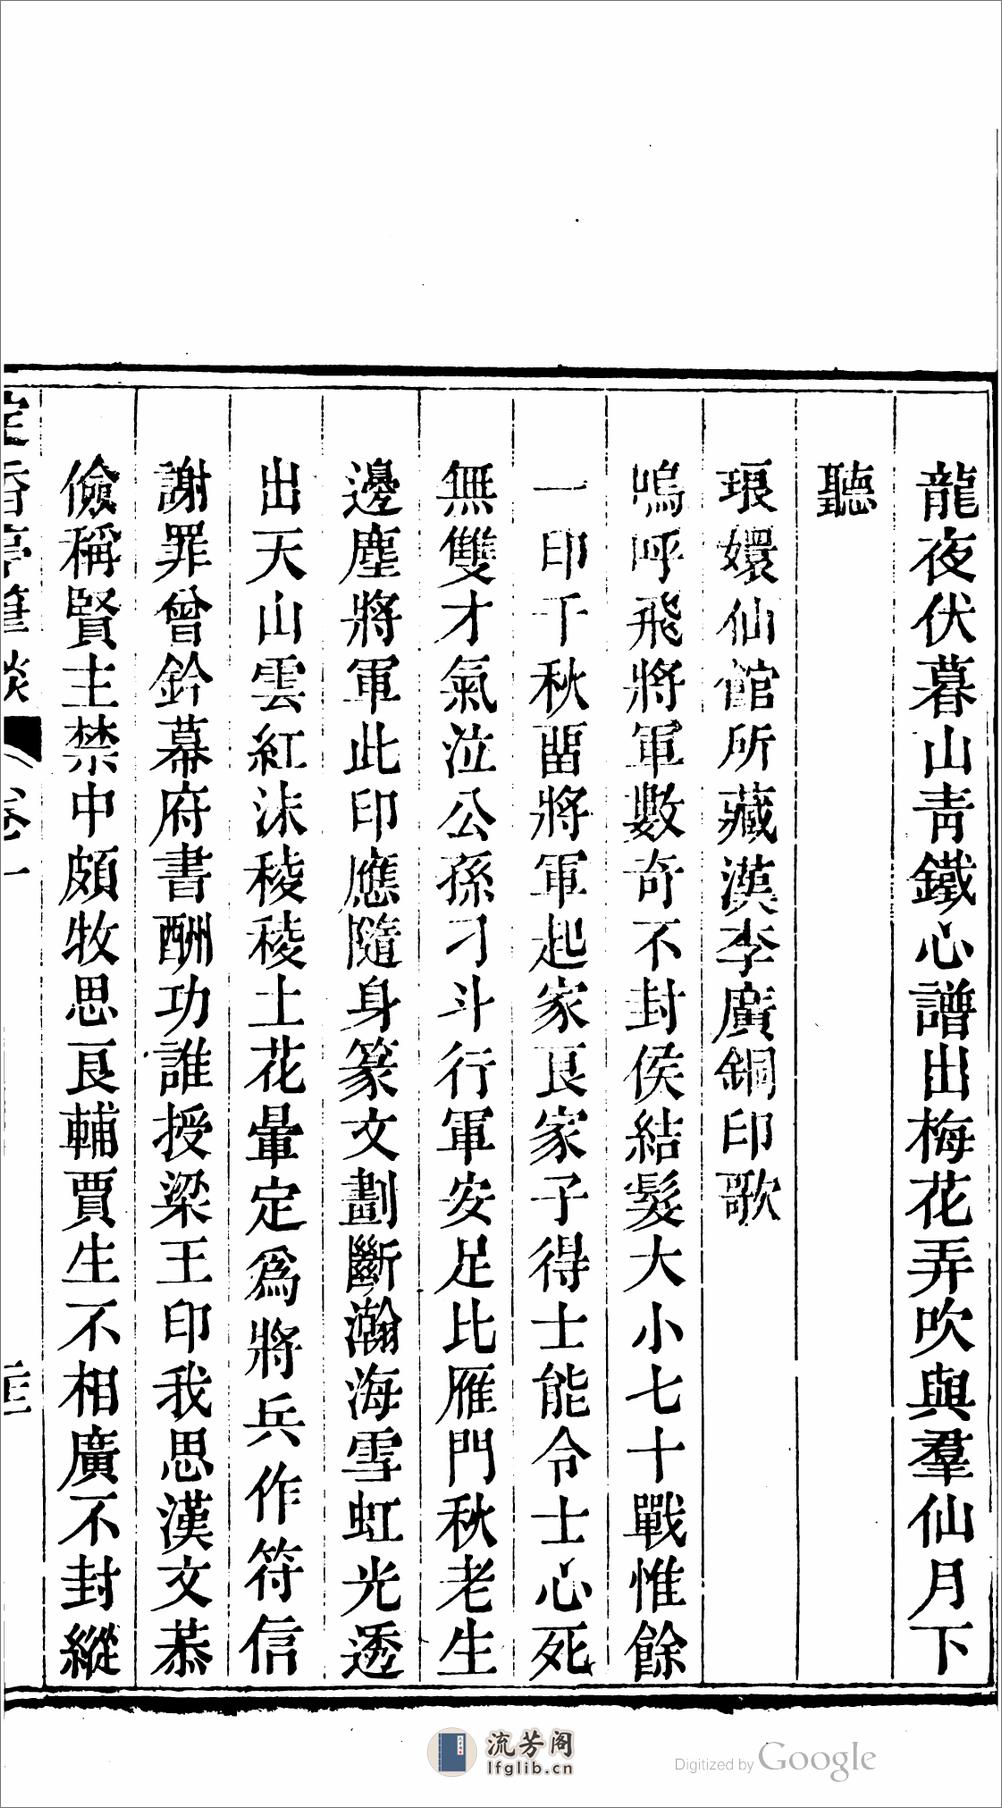 龍夜伏暮山青鐵心譜出梅花弄吹與羣仙月下
聽
琅嬛仙館所藏漢李廣銅印歌
嗚呼飛將軍數奇不封侯結髮大小七十戰惟餘
一印千秋畱將軍起家良家子得士能令士心死
無雙才氣泣公孫刁斗行軍安足比雁門秋老生
邊塵將軍此印應隨身篆文劃斷瀚海雪虹光透
出天山雲紅沬稜稜土花暈定爲將兵作符信
謝罪曾鈐幕府書酬功誰授梁王印我思漢文恭
儉稱賢主禁中頗牧思良輔賈生不相廣不封縱
定香亭筆談 卷一
流芳阁
lfglib.cn
Digitized by Google